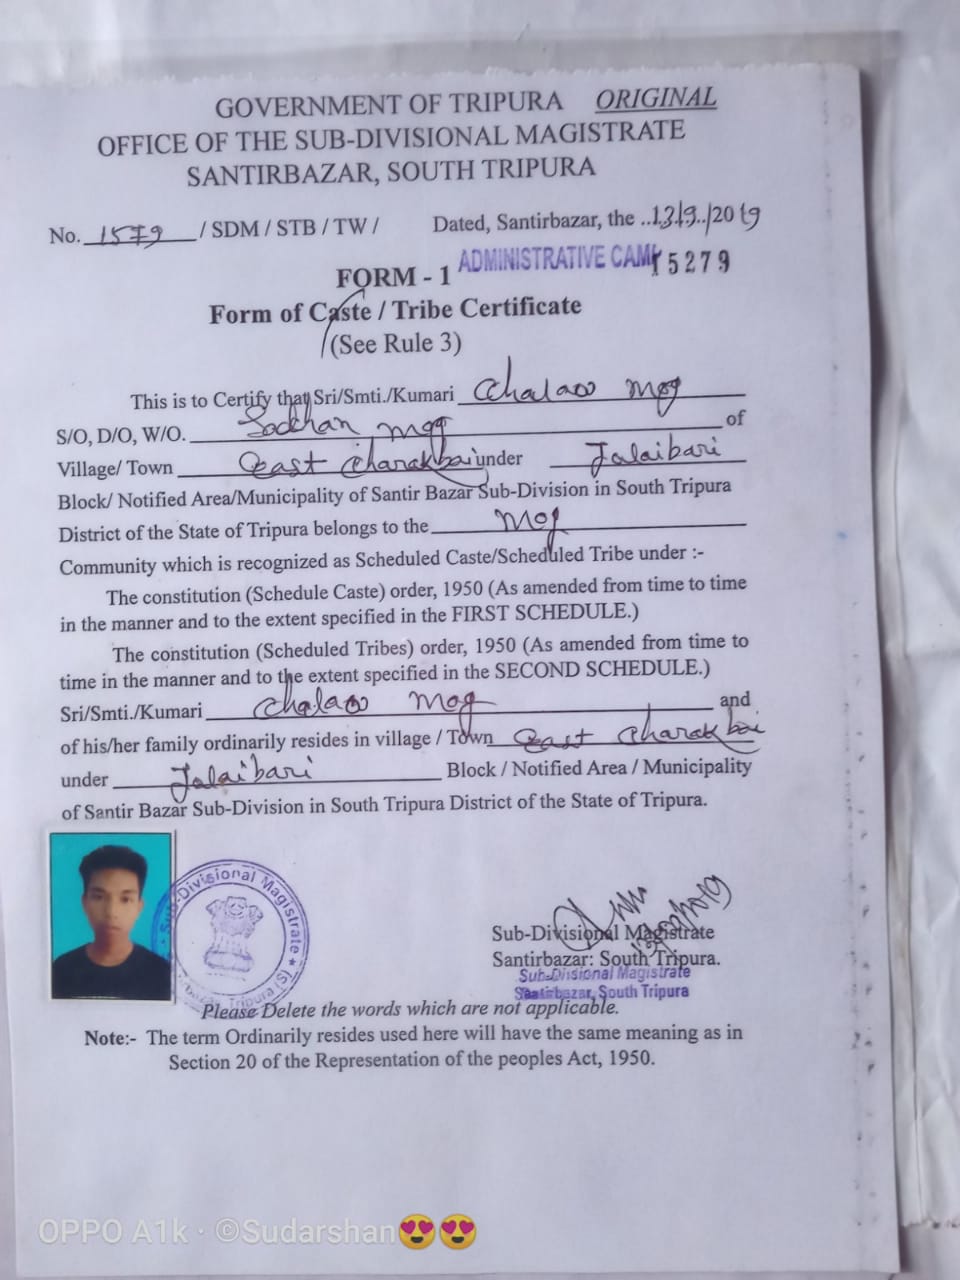 GOVERNMENT OF TRIPURA ORIGINAL
OFFICE OF THE SUB-DIVISIONAL MAGISTRATE
SANTIRBAZAR, SOUTH TRIPURA
No. 1579 / SDM / STB / TW / Dated, Santirbazar, the ..13/9../2019
ADMINISTRATIVE CAMP 15279
FORM - 1
Form of Caste / Tribe Certificate
(See Rule 3)
This is to Certify that Sri/Smti./Kumari Chalao Mog
S/O, D/O, W/O. Sadhan Mog of
Village/ Town East Charakbai under Jolaibari
Block/ Notified Area/Municipality of Santir Bazar Sub-Division in South Tripura
District of the State of Tripura belongs to the Mog
Community which is recognized as Scheduled Caste/Scheduled Tribe under :-
The constitution (Schedule Caste) order, 1950 (As amended from time to time
in the manner and to the extent specified in the FIRST SCHEDULE.)
The constitution (Scheduled Tribes) order, 1950 (As amended from time to
time in the manner and to the extent specified in the SECOND SCHEDULE.)
Sri/Smti./Kumari Chalao Mog and
of his/her family ordinarily resides in village / Town East Charakbai
under Jolaibari Block / Notified Area / Municipality
of Santir Bazar Sub-Division in South Tripura District of the State of Tripura.
Sub-Divisional Magistrate
Sub-Divisional Magistrate
Santirbazar: South Tripura.
Sub-Diisional Magistrate
Santirbazar, South Tripura
Please Delete the words which are not applicable.
Note:- The term Ordinarily resides used here will have the same meaning as in
Section 20 of the Representation of the peoples Act, 1950.
OPPO A1k · ©Sudarshan😍😍